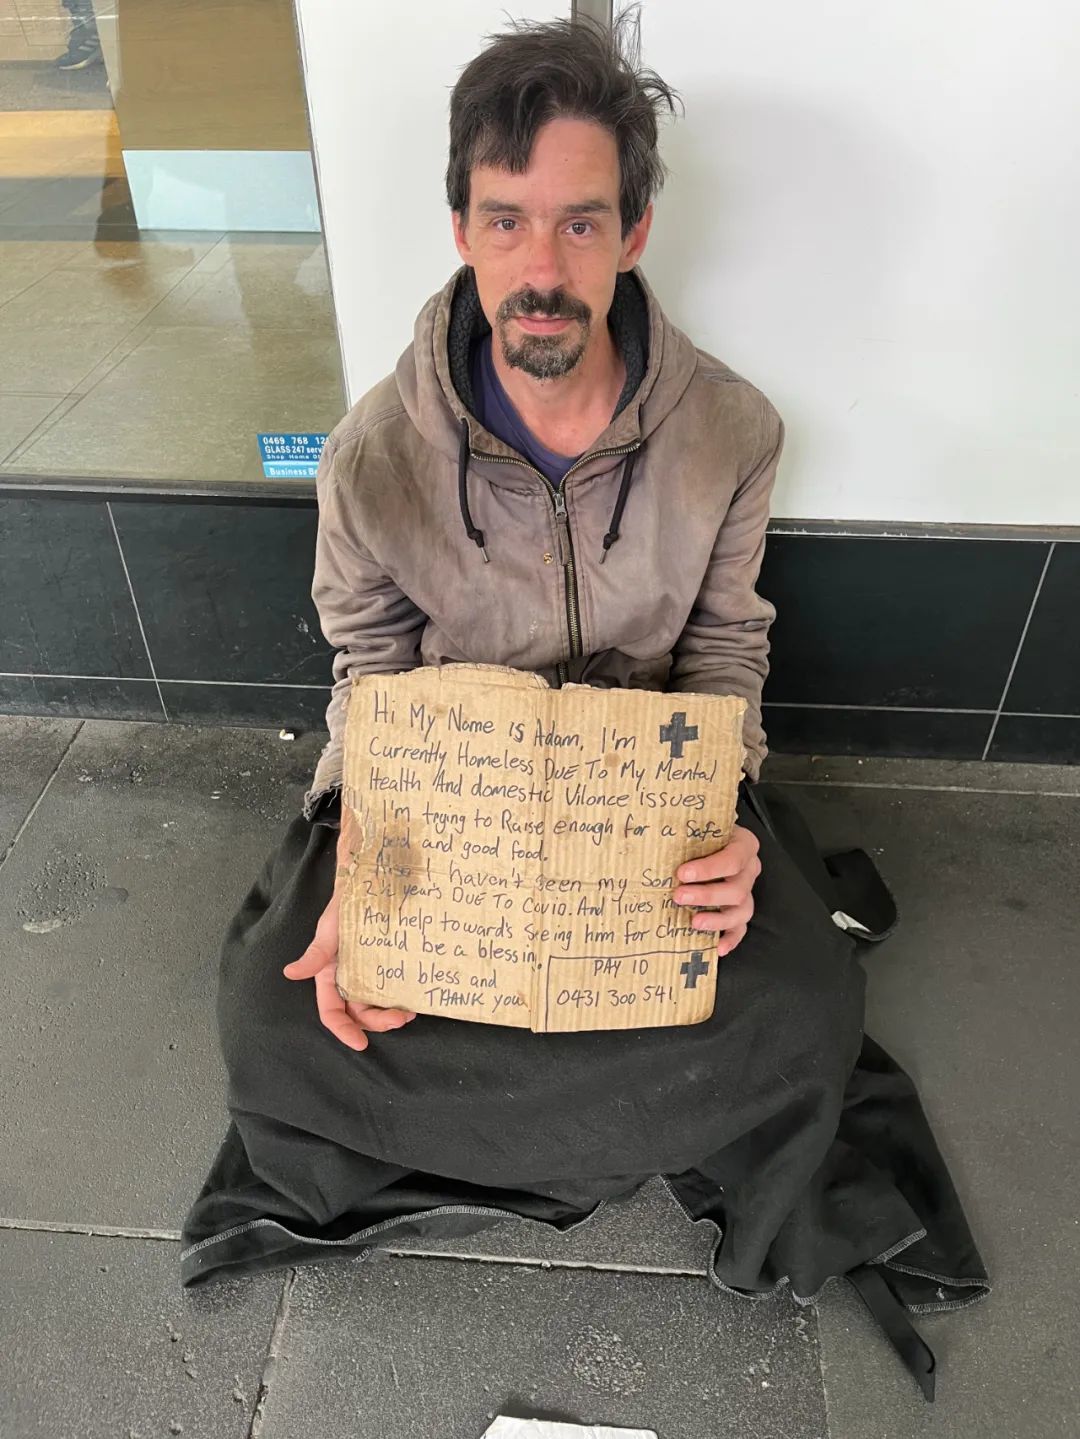 0469 768 12
GLASS 247 serv
Shop Home O
Business B
Hi My Name is Adam, I'm
Currently Homeless DUE To My Mental
Health And domestic Vilonce issues
I'm trying to Raise enough for a Safe
bed and good food.
Also I haven't seen my Son
2½ year's DUE To Covid. And lives in
Any help toward's Seeing him for Christm
would be a blessin.
god bless and
THANK you
PAY ID
0431 300 541.